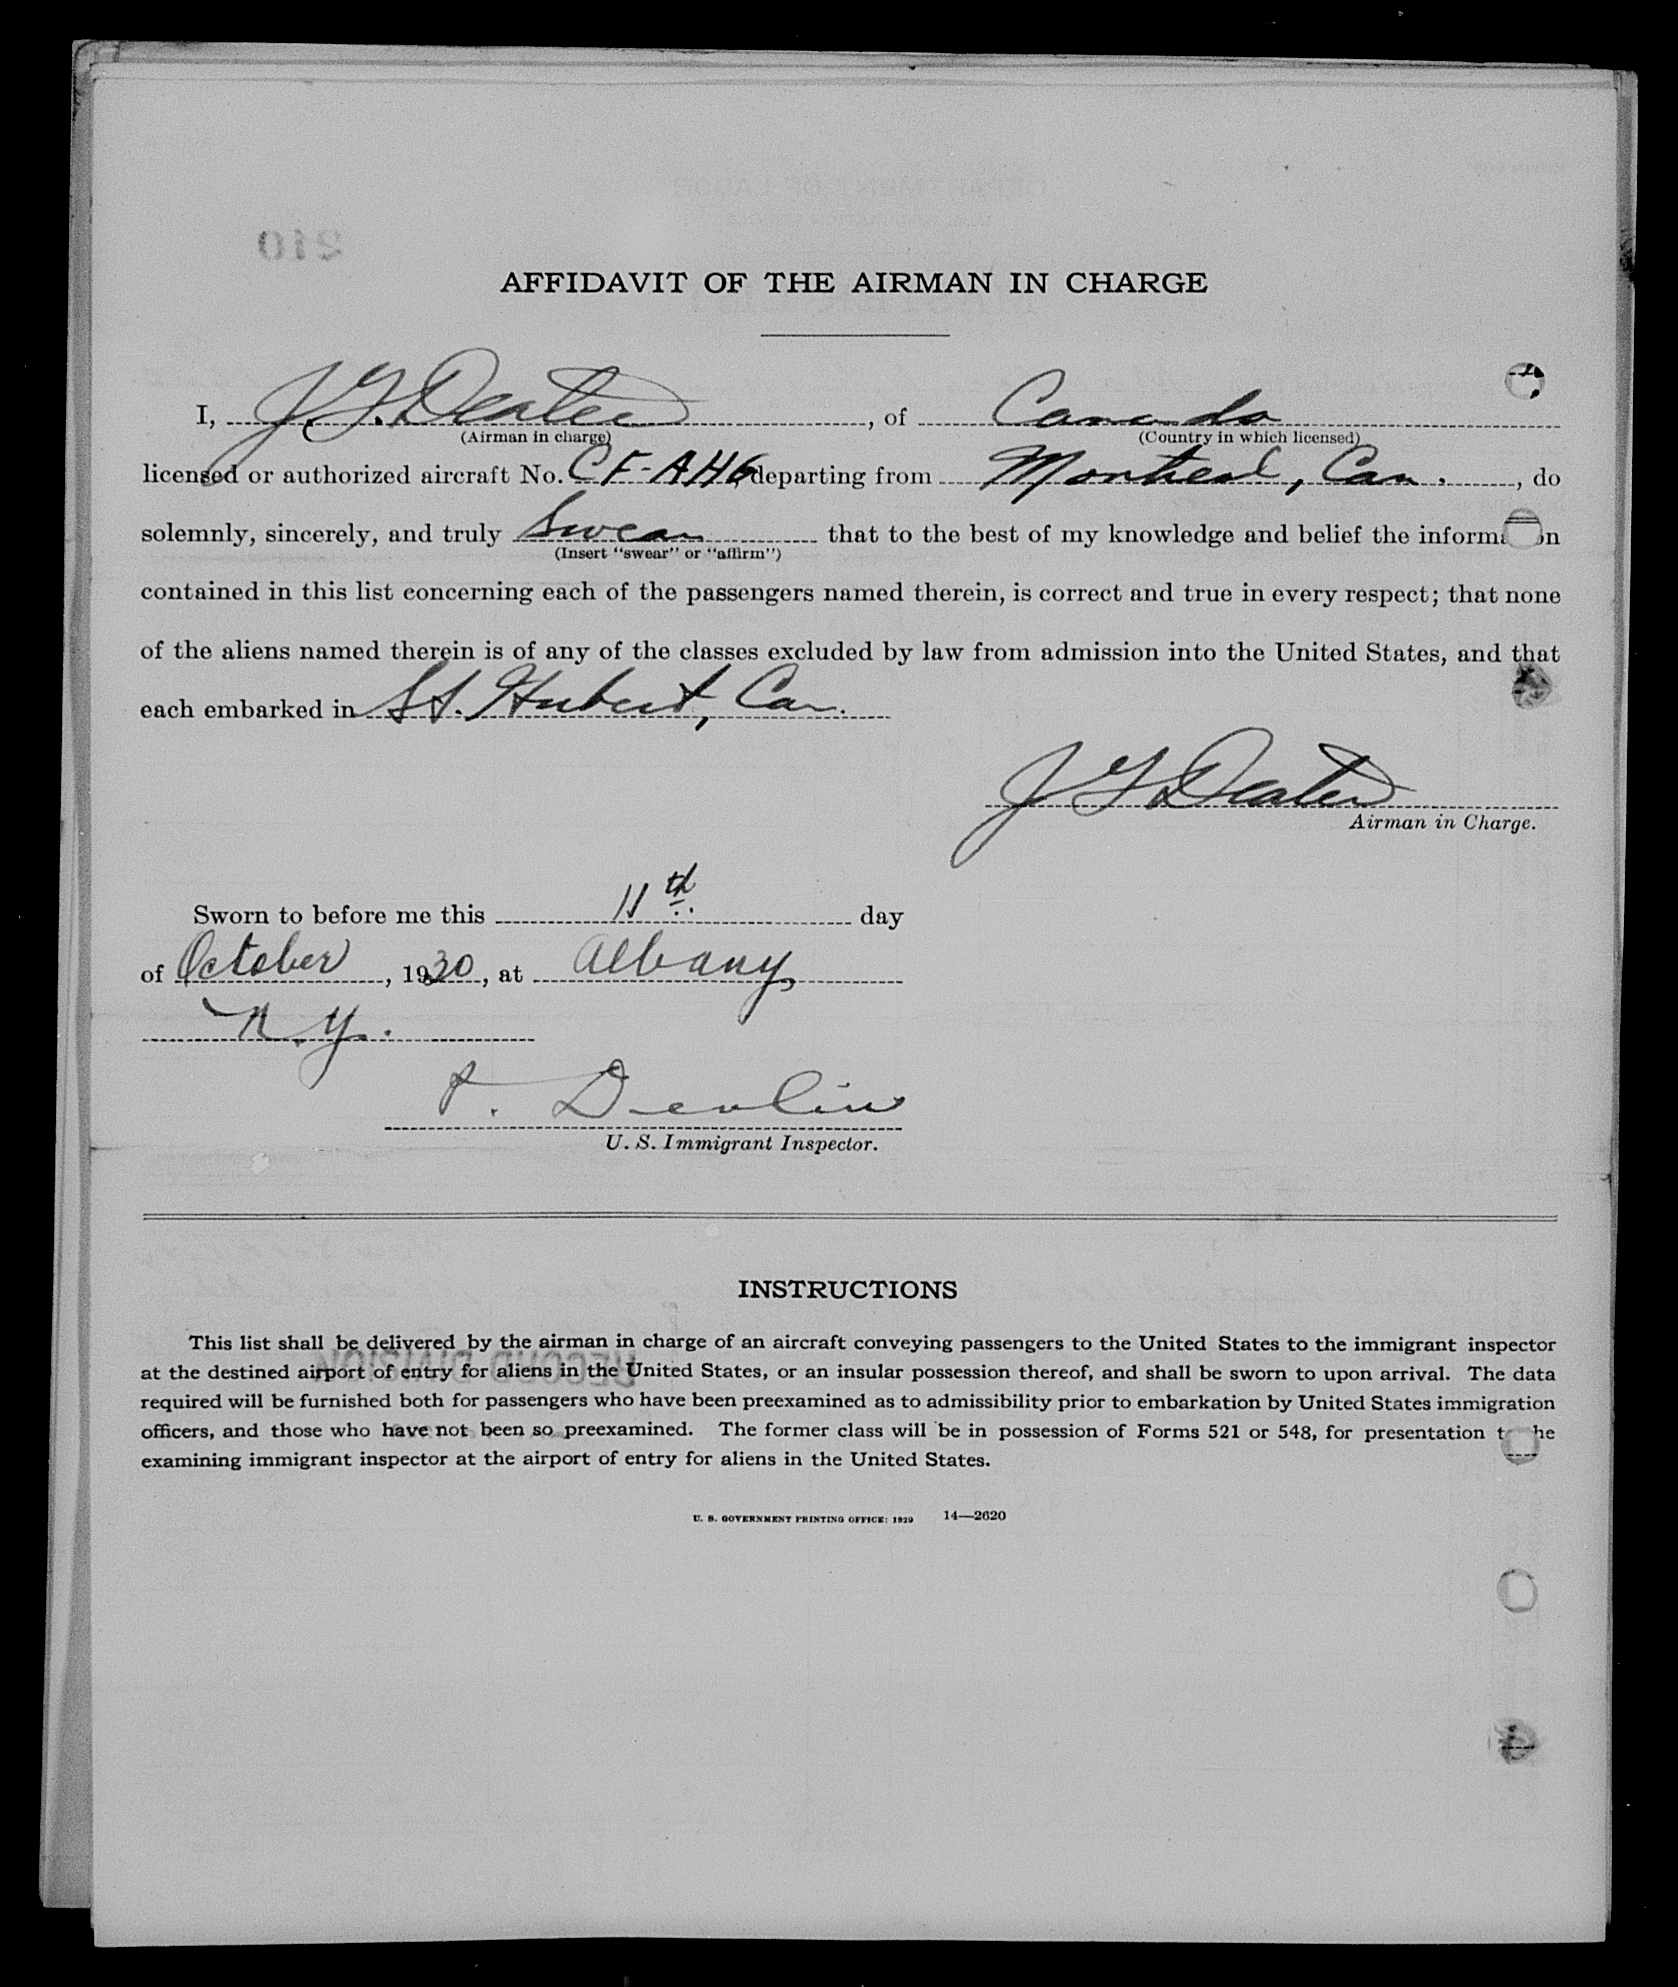 AFFIDAVIT OF THE AIRMAN IN CHARGE
I, J. Y. Dexter, of Canada
(Airman in charge) (Country in which licensed)
licensed or authorized aircraft No. CF-AHG, departing from Montreal, Can., do
solemnly, sincerely, and truly swear that to the best of my knowledge and belief the information
(Insert "swear" or "affirm")
contained in this list concerning each of the passengers named therein, is correct and true in every respect; that none
of the aliens named therein is of any of the classes excluded by law from admission into the United States, and that
each embarked in St. Hubert, Can.
J Y Dexter
Airman in Charge.
Sworn to before me this 11th. day
of October, 1930, at Albany,
N.Y.
Devlin
U. S. Immigrant Inspector.
INSTRUCTIONS
This list shall be delivered by the airman in charge of an aircraft conveying passengers to the United States to the immigrant inspector
at the destined airport of entry for aliens in the United States, or an insular possession thereof, and shall be sworn to upon arrival. The data
required will be furnished both for passengers who have been preexamined as to admissibility prior to embarkation by United States immigration
officers, and those who have not been so preexamined. The former class will be in possession of Forms 521 or 548, for presentation to the
examining immigrant inspector at the airport of entry for aliens in the United States.
U. S. GOVERNMENT PRINTING OFFICE: 1929 14—2620